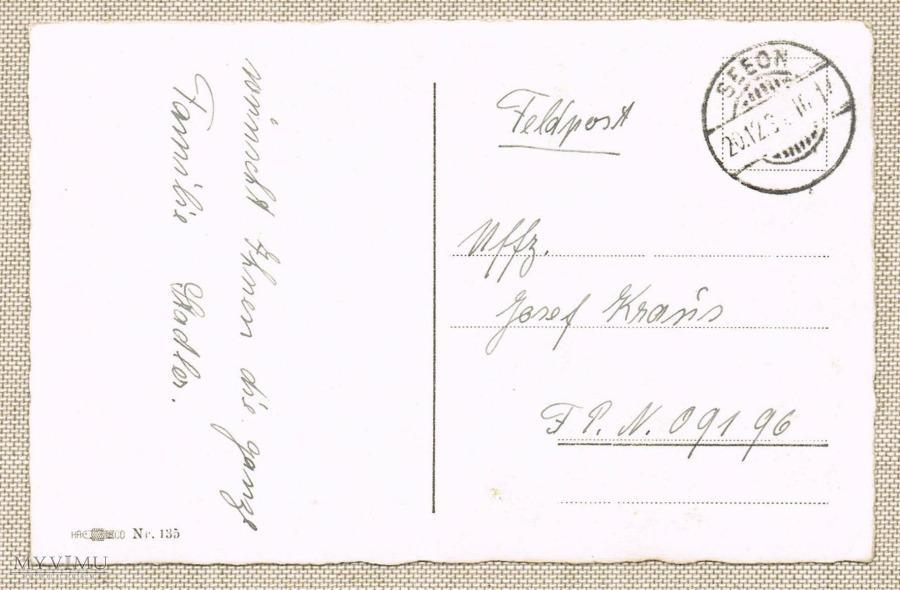 wünscht Ihnen die ganze
Familie Stadler.
Feldpost
SEEON
20.12.
Uffz.
Josef Kraus
F P. N. 09196
Nr. 135
MYVIMU